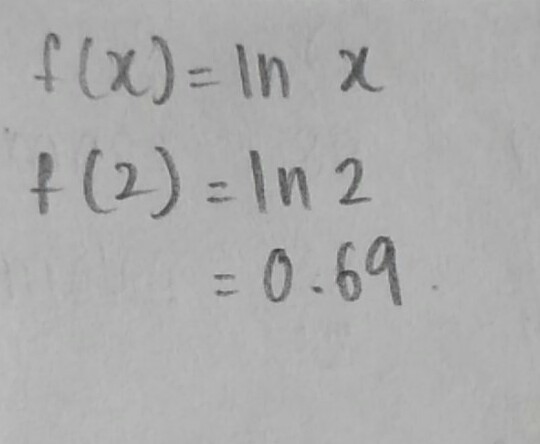 f(x) = ln x
f(2) = ln 2
= 0.69